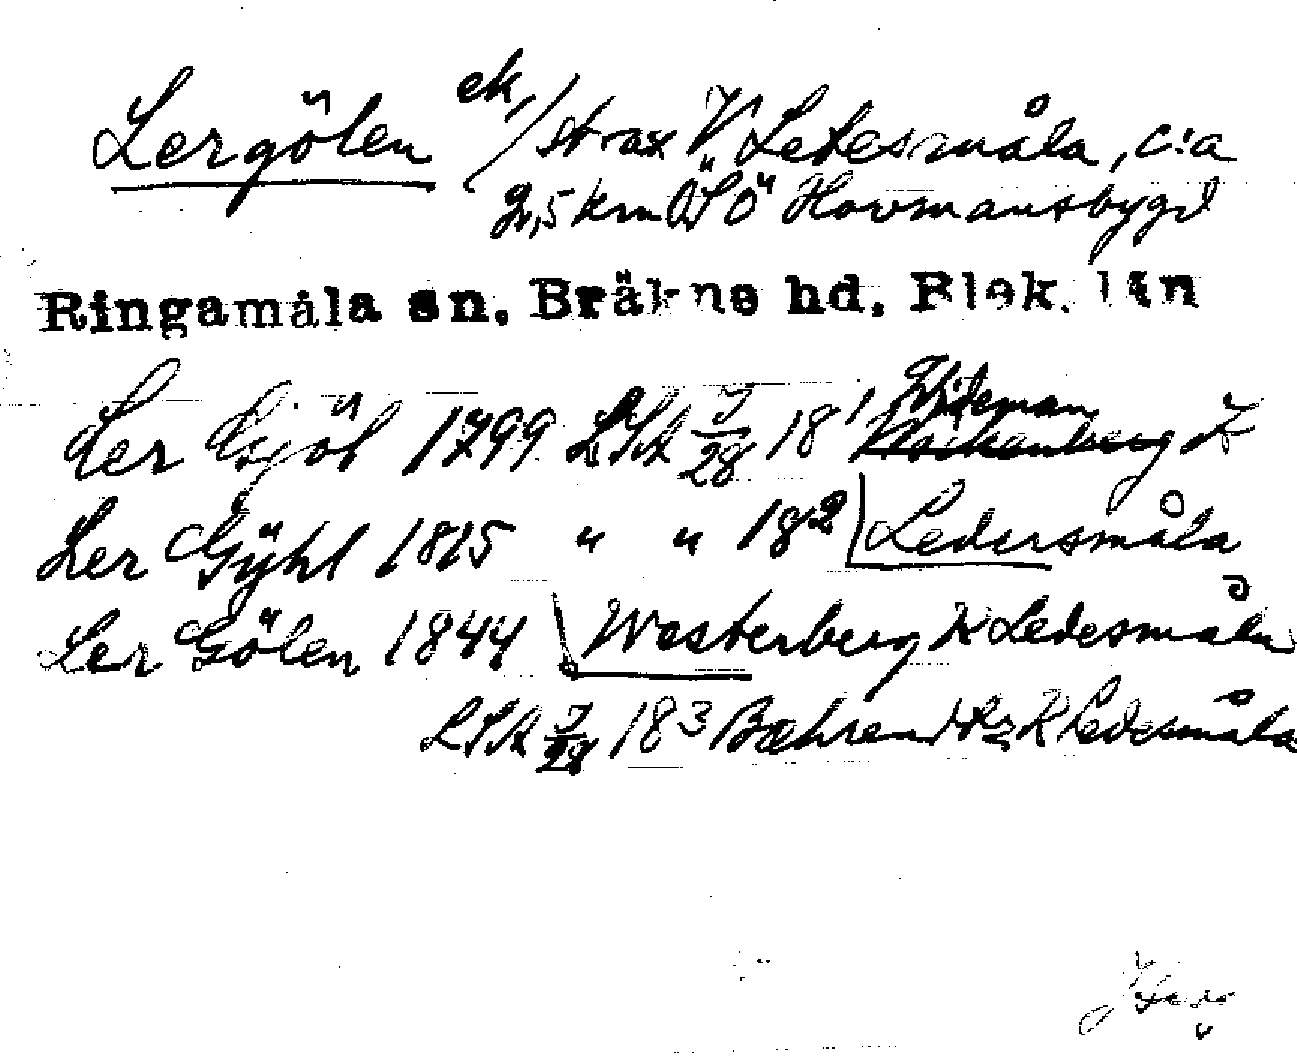 Lergölen ek, / strax V Ledesmåla, c:a
2,5 km ÖSÖ Hovmansbygd
Ringamåla sn. Bräkne hd. Blek. län
Ler Gjöl 1799 LSA J/28 18¹ Wideman K
Ler Gÿhl 1815 " " 18² Ledersmåla
Ler Gölen 1844 Westerberg K Ledesmåla
LSA J/28 18³ Bæhrendtz K Ledesmåla